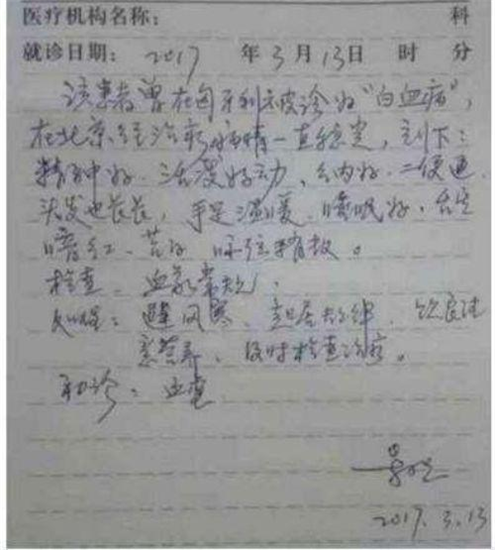 医疗机构名称: 科
就诊日期: 2017 年 3 月 13 日 时 分
该患者曾在匈牙利被诊为"白血病",
在北京经治疗病情一直稳定, 刻下:
精神好. 活泼好动、纳好. 二便通.
头发也长长, 手足温暖. 睡眠好. 舌尖
苔白 脉弦有
检查. 血尿常规.
避风寒. 起居规律. 饮食注
意营养、及时检查治疗。
初诊: 血虚
2017. 3. 13